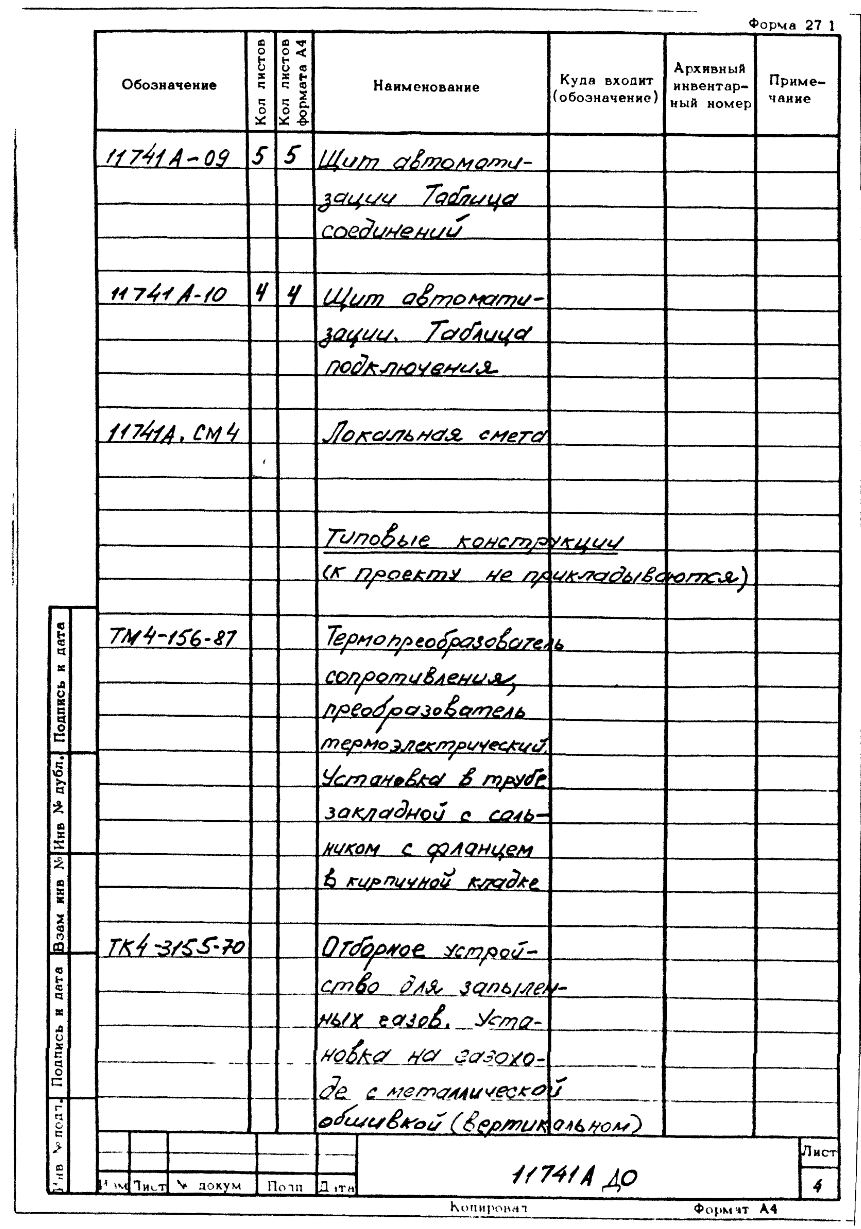 Форма 27 1
Обозначение
Кол листов
Кол листов формата А4
Наименование
Куда входит (обозначение)
Архивный инвентар- ный номер
Приме- чание
11741А-09 5 5 Щит автомати-
зации Таблица
соединений
11741А-10 4 4 Щит автомати-
зации. Таблица
подключения
11741А. СМ4 Локальная смета
Типовые конструкции
(к проекту не прикладываются)
ТМ4-156-87 Термопреобразователь
сопротивления,
преобразователь
термоэлектрический.
Установка в трубе
закладной с саль-
ником с фланцем
в кирпичной кладке
ТК4-3155-70 Отборное устрой-
ство для запылен-
ных газов. Уста-
новка на газохо-
де с металлической
обшивкой (вертикальном)
Подпись и дата
Инв № дубл.
Взам инв №
Подпись и дата
Инв № подл.
Изм Лист № докум Подп Дата
11741А ДО
Лист
4
Копировал Формат А4